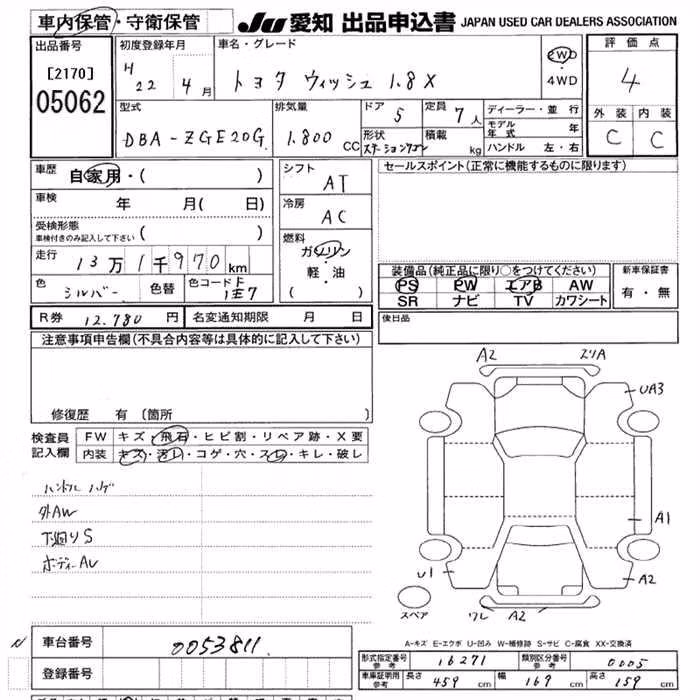 車内保管・守衛保管 JU 愛知 出品申込書 JAPAN USED CAR DEALERS ASSOCIATION
出品番号 初度登録年月 車名・グレード 2WD 評価点
[2170] H 22年 4月 トヨタ ウィッシュ 1.8X ・ 4WD 4
05062 外装 内装
型式 排気量 ドア 5 定員 7人 ディーラー・並行 C C
DBA-ZGE20G 1.800 CC 形状 ステーションワゴン 積載 kg モデル年式 年
ハンドル 左・右
車歴 自家用・( ) シフト AT セールスポイント(正常に機能するものに限ります)
車検 年 月( 日) 冷房 AC
受検形態
車検付きのみ記入して下さい ( )
燃料 ガソリン・軽・油 ( )
走行 13万1千970km
色 シルバー 色替 色コード 1E7
装備品(純正品に限り○をつけてください) 新車保証書
PS PW エアB AW 有・無
SR ナビ TV カワシート
R券 12.780円 名変通知期限 月 日 後日品
注意事項申告欄(不具合内容等は具体的に記入して下さい)
修復歴 有 〔箇所 〕
検査員記入欄 FW キズ・飛石・ヒビ割・リペア跡・X要
内装 キズ・汚レ・コゲ・穴・スレ・キレ・破レ
ハンドルハゲ
外AW
下廻りS
ボディーAU
A2
スリA
UA3
A1
U1
A2
スペア
ワレ A2
A-キズ E-エクボ U-凹み W-補修跡 S-サビ C-腐食 XX-交換済
N 車台番号 0053811
登録番号
形式指定番号 参考 16271 類別区分番号 参考 0005
車庫証明用 参考 長さ 459cm 幅 169cm 高さ 159cm